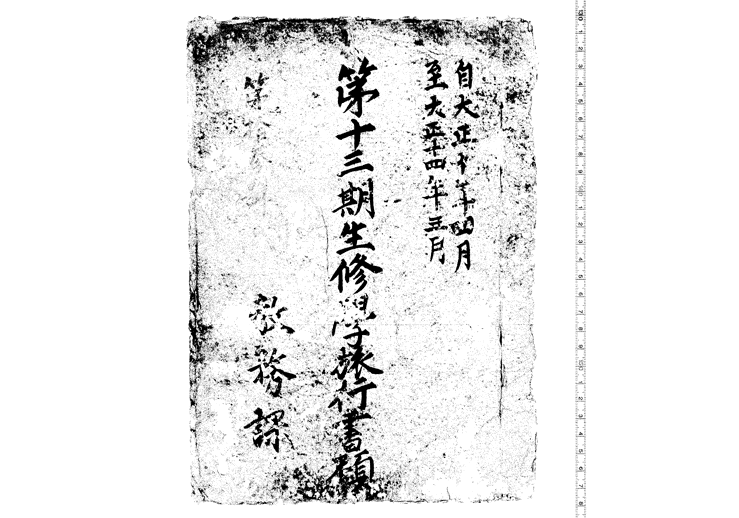 自大正十年四月
至大正十四年五月
第十三期生修學旅行書類
第
教務課